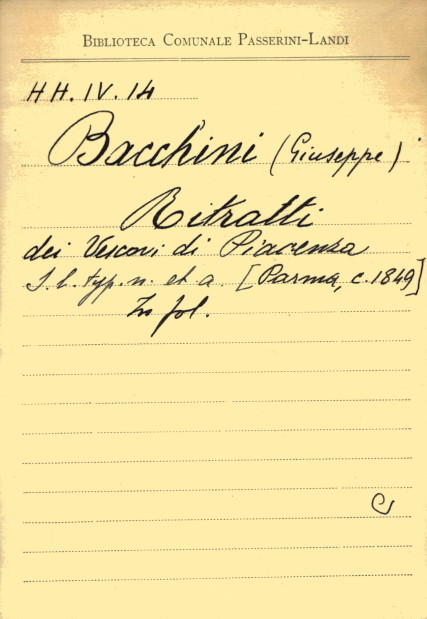 BIBLIOTECA COMUNALE PASSERINI-LANDI
HH.IV.14
Bacchini (Giuseppe)
Ritratti
dei Vescovi di Piacenza
S.l.typ.n. et a. [Parma, c.1849]
In fol.